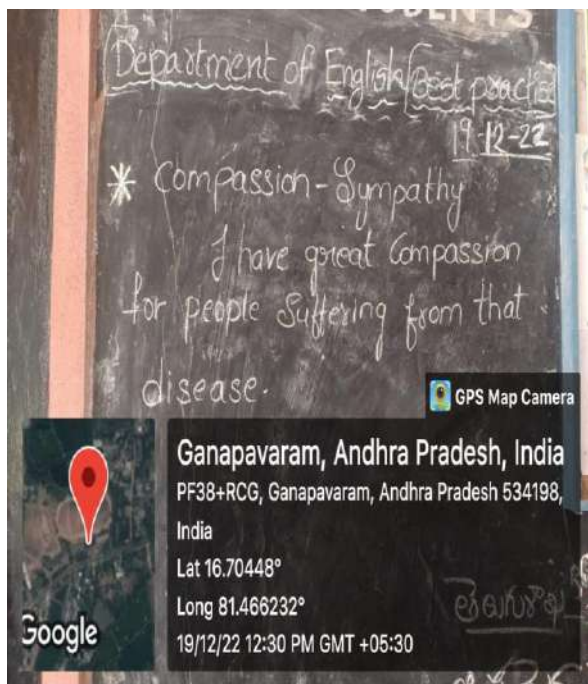 Department of English/Best practice
19-12-22
* Compassion - Sympathy
I have great Compassion
for people Suffering from that
disease.
GPS Map Camera
Ganapavaram, Andhra Pradesh, India
PF38+RCG, Ganapavaram, Andhra Pradesh 534198,
India
Lat 16.70448°
Long 81.466232°
19/12/22 12:30 PM GMT +05:30
Google